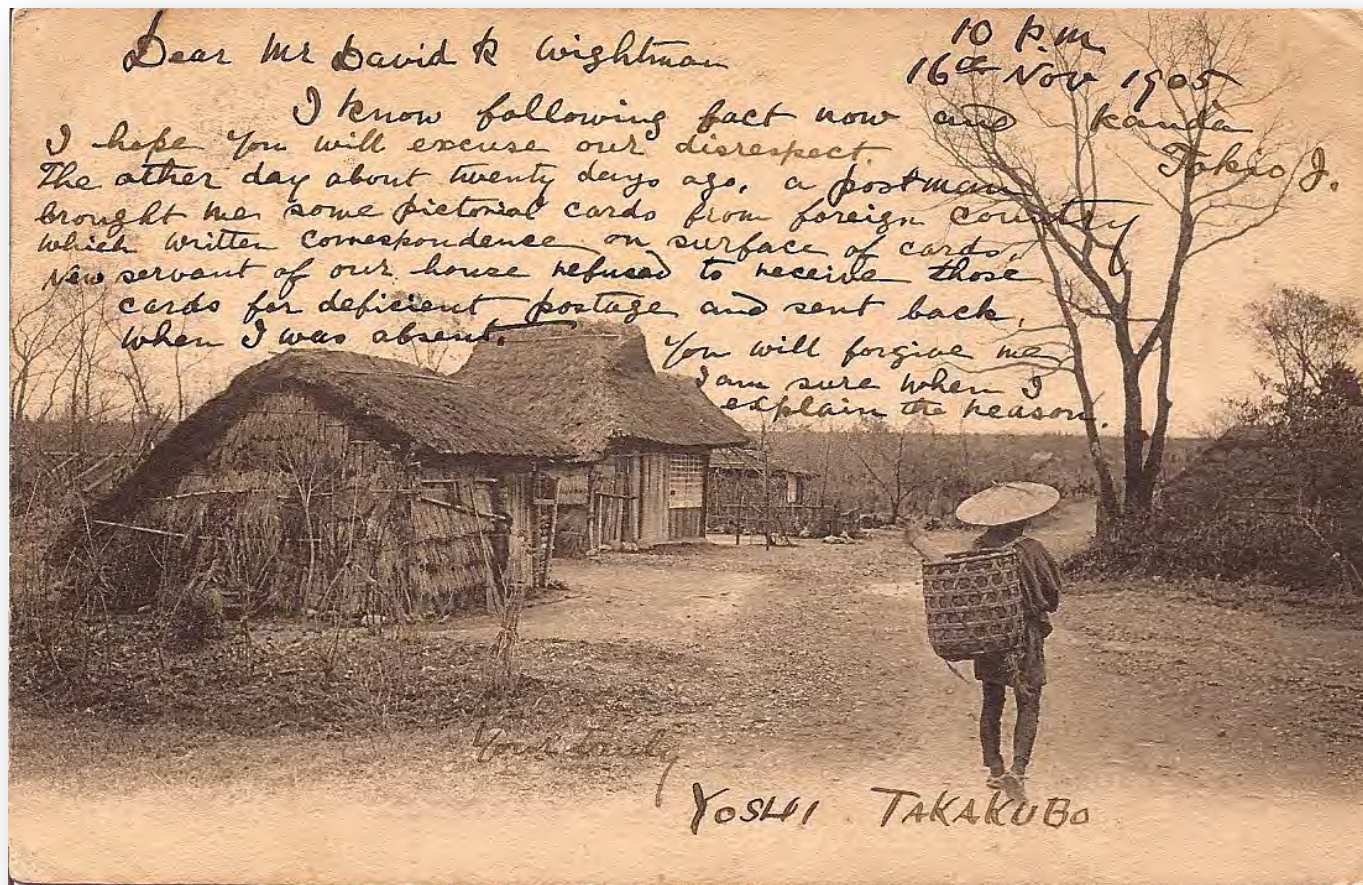 10 P.m.
Dear Mr David R Wightman
16th Nov 1905
I know following fact now and Kanda
I hope you will excuse our disrespect. Tokio J.
The other day about twenty days ago, a postman
brought me some pictorial cards from foreign country
which written correspondence on surface of cards,
New servant of our house refused to receive those
cards for deficient postage and sent back,
when I was absent.
You will forgive me
I am sure when I
explain the reason.
Yours truly
YOSHI TAKAKUBO